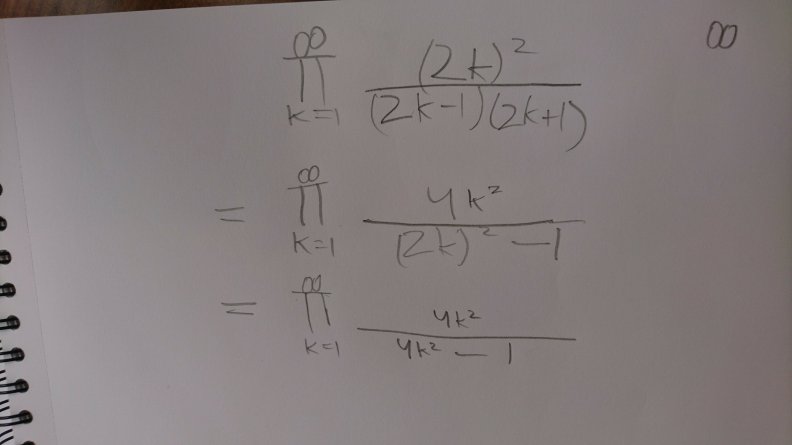 ∞
∏_{k=1}^{∞} (2k)² / (2k-1)(2k+1)
= ∏_{k=1}^{∞} 4k² / (2k)² - 1
= ∏_{k=1}^{∞} 4k² / 4k² - 1